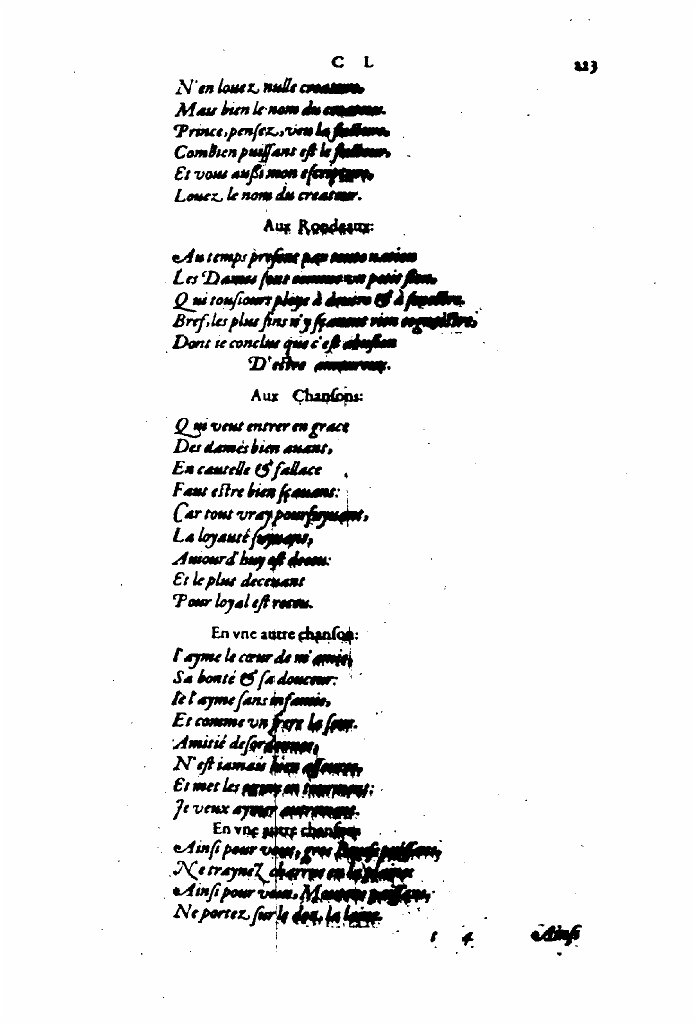 C L 223
N'en louez nulle creature,
Mais bien le nom du createur.
Prince, pensez, veu la facture,
Combien puissant est le facteur,
Et vous aussi mon escripture,
Louez le nom du createur.
Aux Rondeaux:
Au temps present par toute nation
Les Dames sont comme un petit sion,
Qui tousiours ploye à dextre & à senestre,
Bref, les plus fins n'y sçauent rien cognoistre,
Dont ie conclue que c'est abusion
D'estre amoureux.
Aux Chansons:
Qui veut entrer en grace
Des dames bien auant,
En cautelle & fallace
Faut estre bien sçauant:
Car tout vray poursuyuant,
La loyauté suyuant,
Auiourd'huy est deceu:
Et le plus deceuant
Pour loyal est receu.
En vne autre chanson:
I'ayme le cœur de m'amie,
Sa bonté & sa douceur:
Ie l'ayme sans infamie,
Et comme vn frere la sœur.
Amitié desordonnee,
N'est iamais bien asseuree,
Et met les cœurs en tourment:
Je veux aymer autrement.
En vne autre chanson
Ainsi pour vous, gros Bœufs puissans,
Ne traynez charrue en la plaine
Ainsi pour vous, Moutons paissans,
Ne portez sur le dos, la laine.
t 4 Ainsi